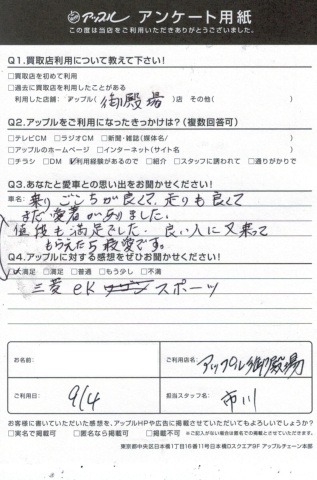 アップル アンケート用紙
この度は当店をご利用いただきありがとうございました。
Q1.買取店利用について教えて下さい!
□買取店を初めて利用
□過去に買取店を利用したことがある
利用した店舗: アップル( 御殿場 )店 その他( )
Q2.アップルをご利用になったきっかけは?(複数回答可)
□テレビCM □ラジオCM □新聞・雑誌(媒体名/ )
□アップルのホームページ □インターネット(サイト名 )
□チラシ □DM ☑利用経験があるので □紹介 □スタッフに誘われて □通りがかりで
Q3.あなたと愛車との思い出をお聞かせください!
車名: 乗りごこちが良くて、走りも良くて
まだ愛着がありました。
値段も満足でした。良い人に又乗って
もらえたら最愛です。
Q4.アップルに対する感想をぜひお聞かせください!
☑満足 □満足 □普通 □もう少し □不満
三菱 eK スポーツ
お名前:
ご利用店名: アップル御殿場
ご利用日: 9/4
担当スタッフ名: 市川
お客様に書いていただいた感想を、アップルHPや広告に掲載させていただいてもよろしいでしょうか?
□実名で掲載可 □匿名なら掲載可 □掲載不可 ※ご記入がない場合は匿名での掲載とさせていただきます。
東京都中央区日本橋1丁目16番11号日本橋Dスクエア9F アップルチェーン本部